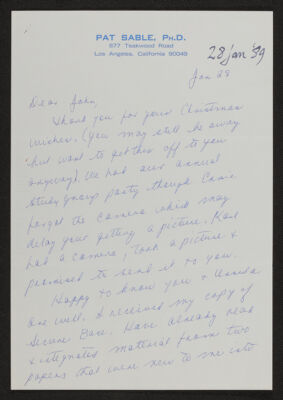 PAT SABLE, PH.D.
877 Teakwood Road
Los Angeles, California 90049
28 Jan '89
Jan 28
Dear John,
Thank you for your Christmas
wishes. (You may still be away
but want to get this off to you
anyway). We had our annual
study group party though
forgot the camera which may
delay your getting a picture. Karl
had a camera, took a picture &
promised to send it to you.
Happy to know you & Ursula
are well. I received my copy of
Secure Base. Have already read
& integrated material from two
papers that were new to me into